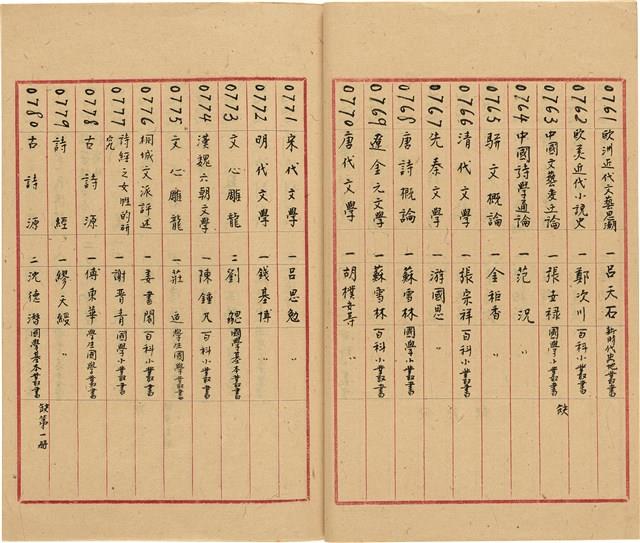 0761 欧洲近代文藝思潮 一 呂天石 新時代史地叢書
0762 欧美近代小説史 一 鄭次川 百科小叢書
0763 中國文藝变迁論 一 張世禄 國學小叢書 缺
0764 中國詩學通論 一 范况 〃
0765 駢文概論 一 金秬香 〃
0766 清代文學 一 張宗祥 百科小叢書
0767 先秦文學 一 游國恩 〃
0768 唐詩概論 一 蘇雪林 國學小叢書
0769 遼金元文學 一 蘇雪林 百科小叢書
0770 唐代文學 一 胡樸安等 〃
0771 宋代文學 一 呂思勉 〃
0772 明代文學 一 錢基博 〃
0773 文心雕龍 二 劉勰 國學基本叢書
0774 漢魏六朝文學 一 陳鍾凡 百科小叢書
0775 文心雕龍 一 莊適 學生國學叢書
0776 桐城文派評述 一 姜書閣 百科小叢書
0777 詩經之女性的研究 一 謝晋青 國學小叢書
0778 古詩源 一 傅東華 學生國學叢書
0779 詩經 一 繆天綬 〃
0780 古詩源 二 沈德潛 國學基本叢書 缺第一册